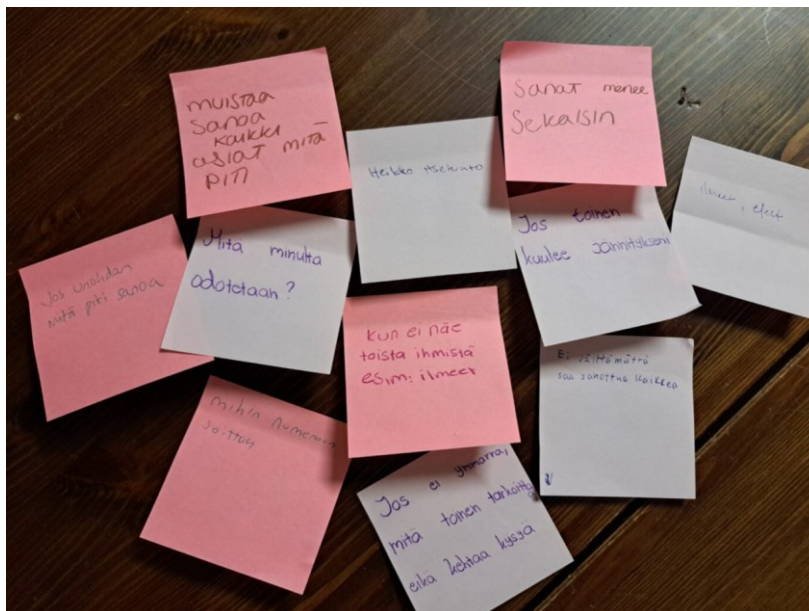 muistaa
sanoa
kaikki
asiat mitä
piti
Sanat menee
Sekaisin
Heikko itsetunto
ilmeet, eleet
Mitä minulta
odotetaan?
Jos toinen
kuulee jännitykseni
Jos unohdan
mitä piti sanoa
kun ei näe
toista ihmistä
esim. ilmeet
Ei välttämättä
saa sanottua kaikkea
mihin numeroon
soittaa
Jos ei ymmärrä,
mitä toinen tarkoittaa
eikä kehtaa kysyä